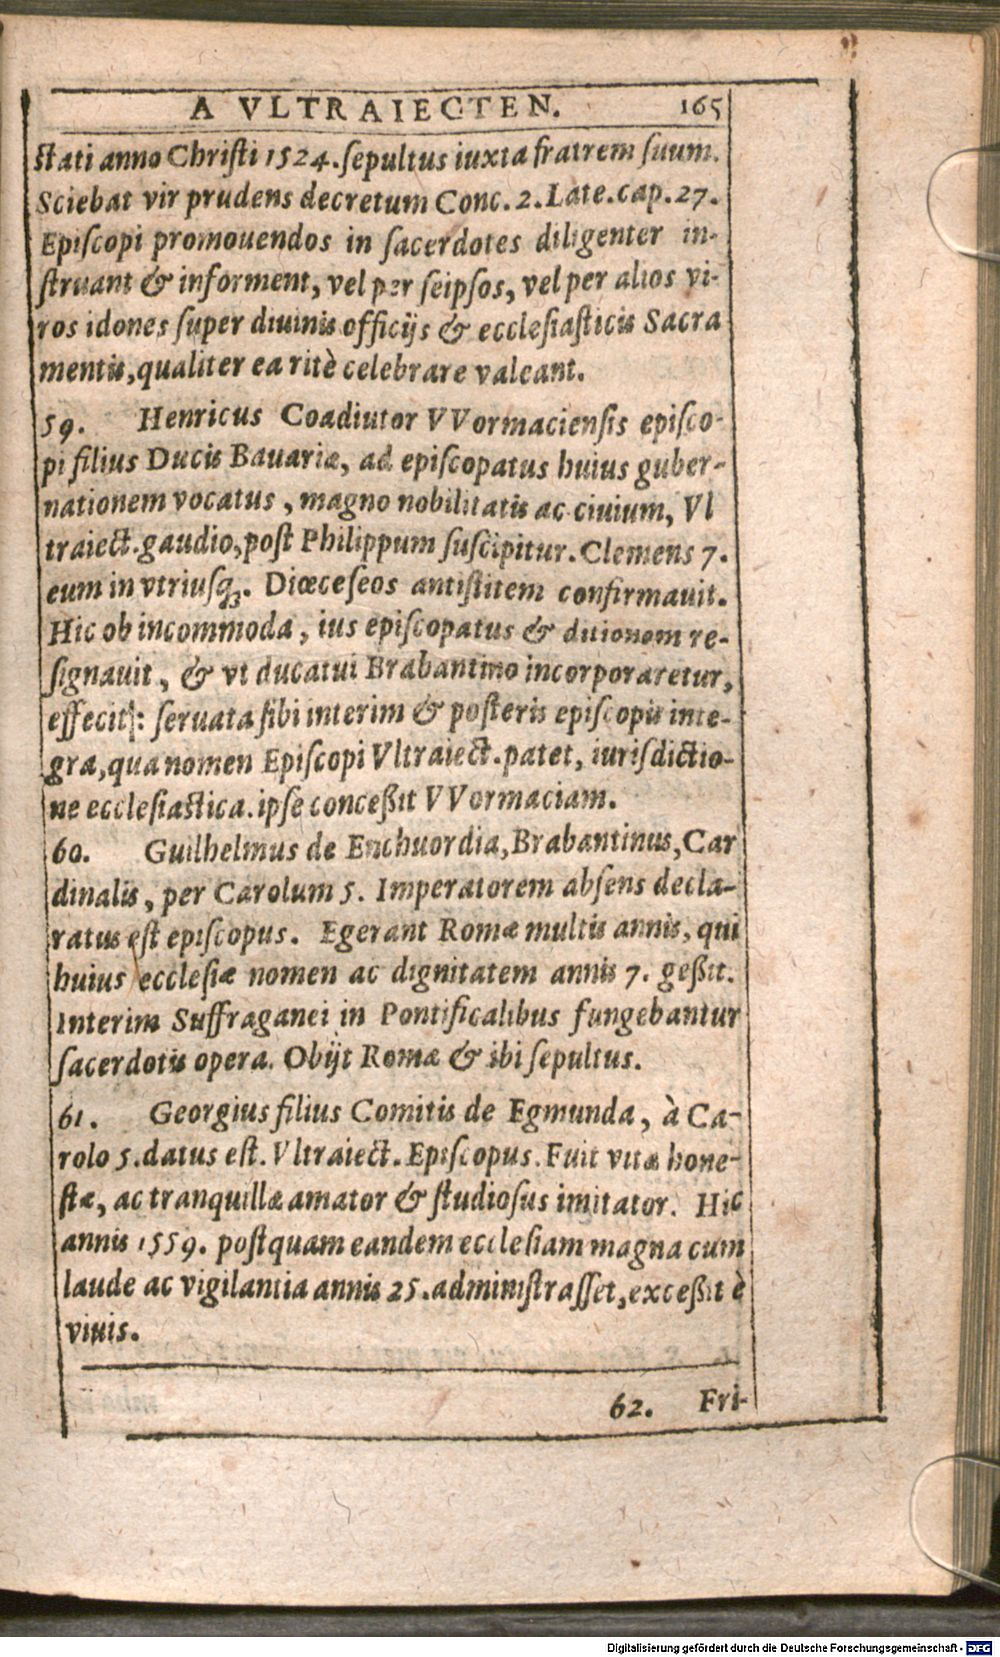 A VLTRAIECTEN. 165
stati anno Christi 1524. sepultus iuxta fratrem suum.
Sciebat vir prudens decretum Conc. 2. Late. cap. 27.
Episcopi promouendos in sacerdotes diligenter in-
struant & informent, vel per seipsos, vel per alios vi-
ros idones super diuinis officijs & ecclesiasticis Sacra
mentis, qualiter ea ritè celebrare valeant.
59. Henricus Coadiutor VVormaciensis episco-
pi filius Ducis Bauariæ, ad episcopatus huius guber-
nationem vocatus, magno nobilitatis ac ciuium, Vl
traiect. gaudio, post Philippum suscipitur. Clemens 7.
eum in vtriusq̃3. Diœceseos antistitem confirmauit.
Hic ob incommoda, ius episcopatus & ditionem re-
signauit, & vt ducatui Brabantino incorporaretur,
effecit: seruata sibi interim & posteris episcopis inte-
gra, qua nomen Episcopi Vltraiect. patet, iurisdictio-
ne ecclesiastica. ipse conceßit VVormaciam.
60. Guilhelmus de Enchuordia, Brabantinus, Car
dinalis, per Carolum 5. Imperatorem absens decla-
ratus est episcopus. Egerant Romæ multis annis, qui
huius ecclesiæ nomen ac dignitatem annis 7. geßit.
Interim Suffraganei in Pontificalibus fungebantur
sacerdotis opera. Obijt Romæ & ibi sepultus.
61. Georgius filius Comitis de Egmunda, à Ca-
rolo 5. datus est. Vltraiect. Episcopus. Fuit vitæ hone-
stæ, ac tranquillæ amator & studiosus imitator. Hic
annis 1559. postquam eandem ecclesiam magna cum
laude ac vigilantia annis 25. administrasset, exceßit è
viuis.
62. Fri-
Digitalisierung gefördert durch die Deutsche Forschungsgemeinschaft - DFG